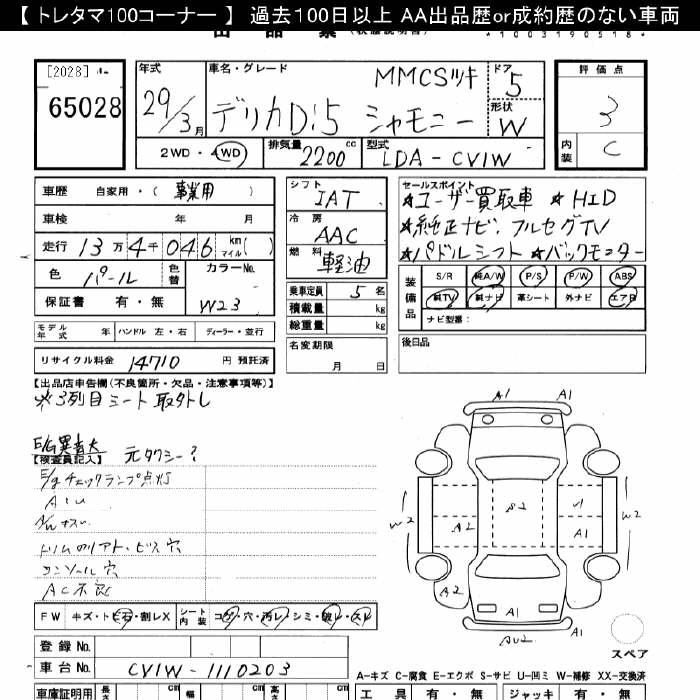 【 トレタマ100コーナー 】 過去100日以上 AA出品歴or成約歴のない車両
[2028]
65028
年式
29/3月
車名・グレード
MMCSツキ
デリカD:5 シャモニー
ドア
5
形状
W
2WD・4WD
排気量 2200 cc
型式 LDA-CV1W
評価点
3
内装 C
車歴 自家用・( 事業用 )
車検 年 月
走行 13万4千046 km マイル( )
色 パール
色替
カラーNo.
W23
保証書 有・無
シフト
IAT
冷房
AAC
燃料
軽油
乗車定員 5 名
積載量 kg
総重量 kg
セールスポイント
★ユーザー買取車 ★HID
★純正ナビ、フルセグTV
★パドルシフト ★バックモニター
装備品
S/R 純A/W P/S P/W ABS
純TV 純ナビ 革シート 外ナビ エアB
ナビ型番:
モデル年式 年 ハンドル 左・右 ディーラー・並行
リサイクル料金 14710 円 預託済
名変期限
月 日
後日品
【出品店申告欄(不良箇所・欠品・注意事項等)】
※3列目シート取外し
E/G異音大
【検査員記入】
元タクシー?
E/gチェックランプ点灯
A/Wキズ
トリムのリアト・ビス穴
コンソール穴
AC不良
FW キズ・トビ石・割レX
シート内装 コゲ・穴・汚レ・シミ・破レ・スレ
登録No.
車台No. CV1W-1110203
A1
A1
W2
A2
S2
W1
A1
W2
A2
A1
A1
AU2
スペア
A-キズ C-腐食 E-エクボ S-サビ U-凹ミ W-補修 XX-交換済
車庫証明用 長さ cm 幅 cm 高さ cm
工具 有・無 ジャッキ 有・無